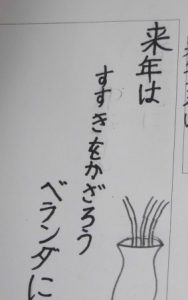 来年は
すすきをかざろう
ベランダに